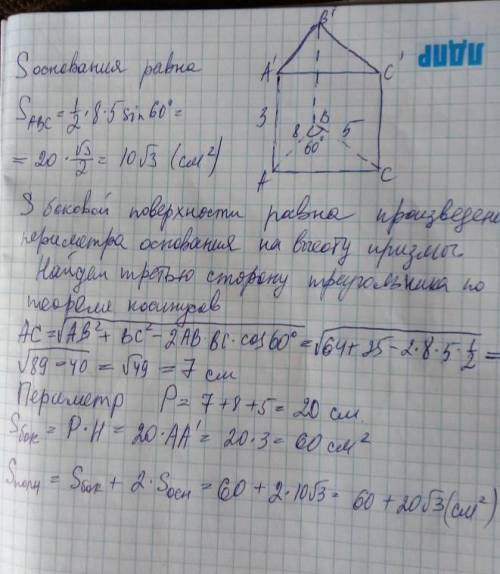 S основания равна
S ABC = 1/2 · 8 · 5 sin 60° =
= 20 · √3/2 = 10√3 (см²)
B'
A' C'
ЛДПР
3 8 B 5
60°
A C
S боковой поверхности равна произведени
периметра основания на высоту призмы.
Найдем третью сторону треугольника по
теореме косинусов
AC = √AB² + BC² - 2AB·BC·cos60° = √64 + 25 - 2·8·5·1/2 =
√89 - 40 = √49 = 7 см
Периметр P = 7 + 8 + 5 = 20 см.
Sбок = P·H = 20·AA' = 20·3 = 60 см²
Sполн = Sбок + 2·Sосн = 60 + 2·10√3 = 60 + 20√3 (см²)